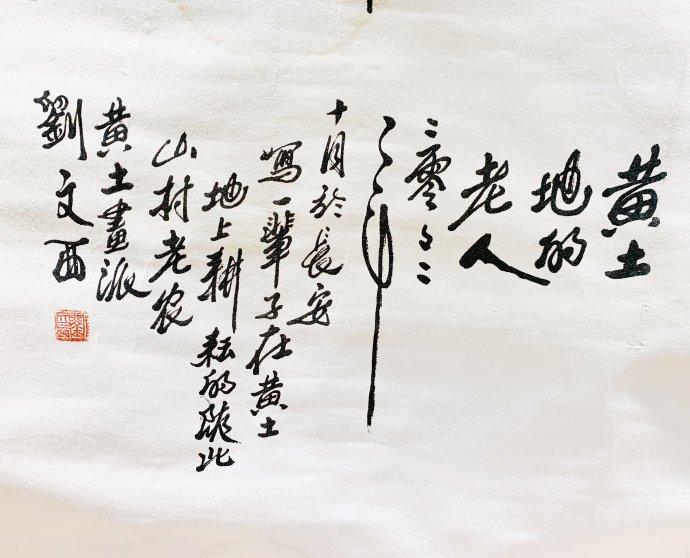 黄土
地的
老人
二零
年
十月於長安
寫一輩子在黄土
地上耕耘的陕北
山村老农
黄土畫派
劉文西